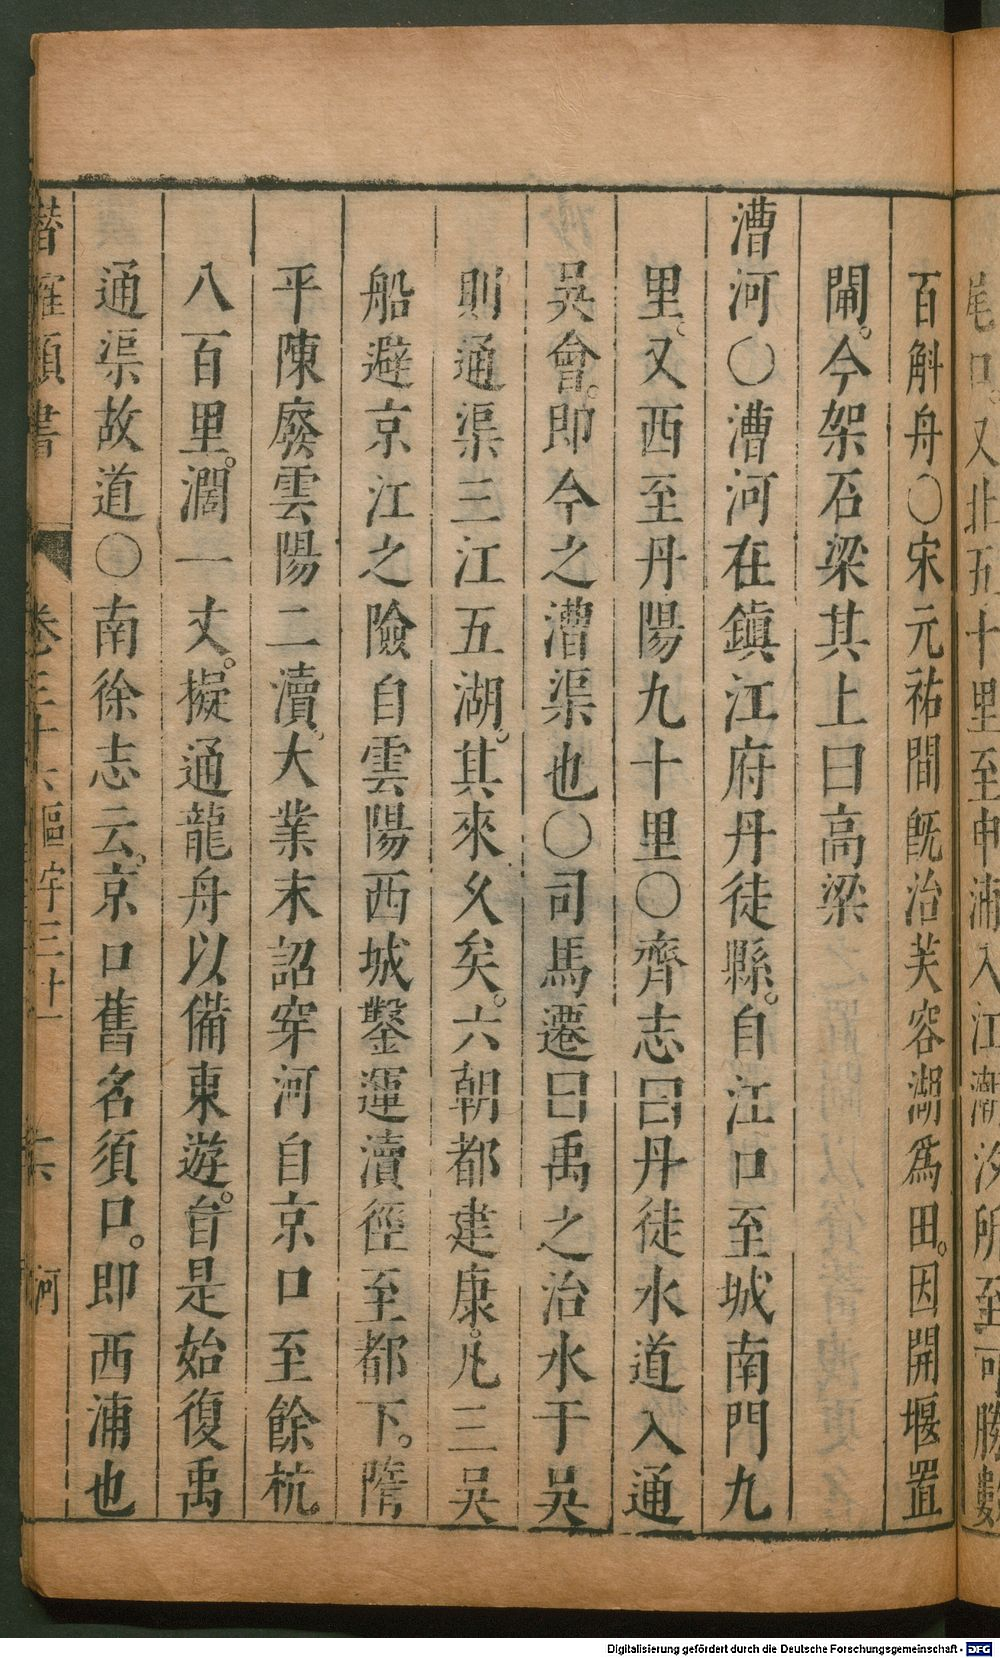 尾口。又北五十里至申浦入江潮汐所至可勝數
百斛舟〇宋元祐間旣治芙容湖爲田。因開堰置
閘。今架石梁其上曰高梁
漕河〇漕河在鎮江府丹徒縣。自江口至城南門九
里。又西至丹陽九十里〇齊志曰丹徒水道入通
吳會。即今之漕渠也〇司馬遷曰禹之治水于吳
則通渠三江五湖。其來久矣。六朝都建康。凡三吳
船避京江之險自雲陽西城鑿運瀆徑至都下。隋
平陳廢雲陽二瀆。大業末詔穿河自京口至餘杭。
八百里。濶一丈。擬通龍舟以備東遊。自是始復禹
通渠故道〇南徐志云。京口舊名須口。即西浦也
潛確類書 卷三十六 區宇三十一 十六 河
Digitalisierung gefördert durch die Deutsche Forschungsgemeinschaft - DFG